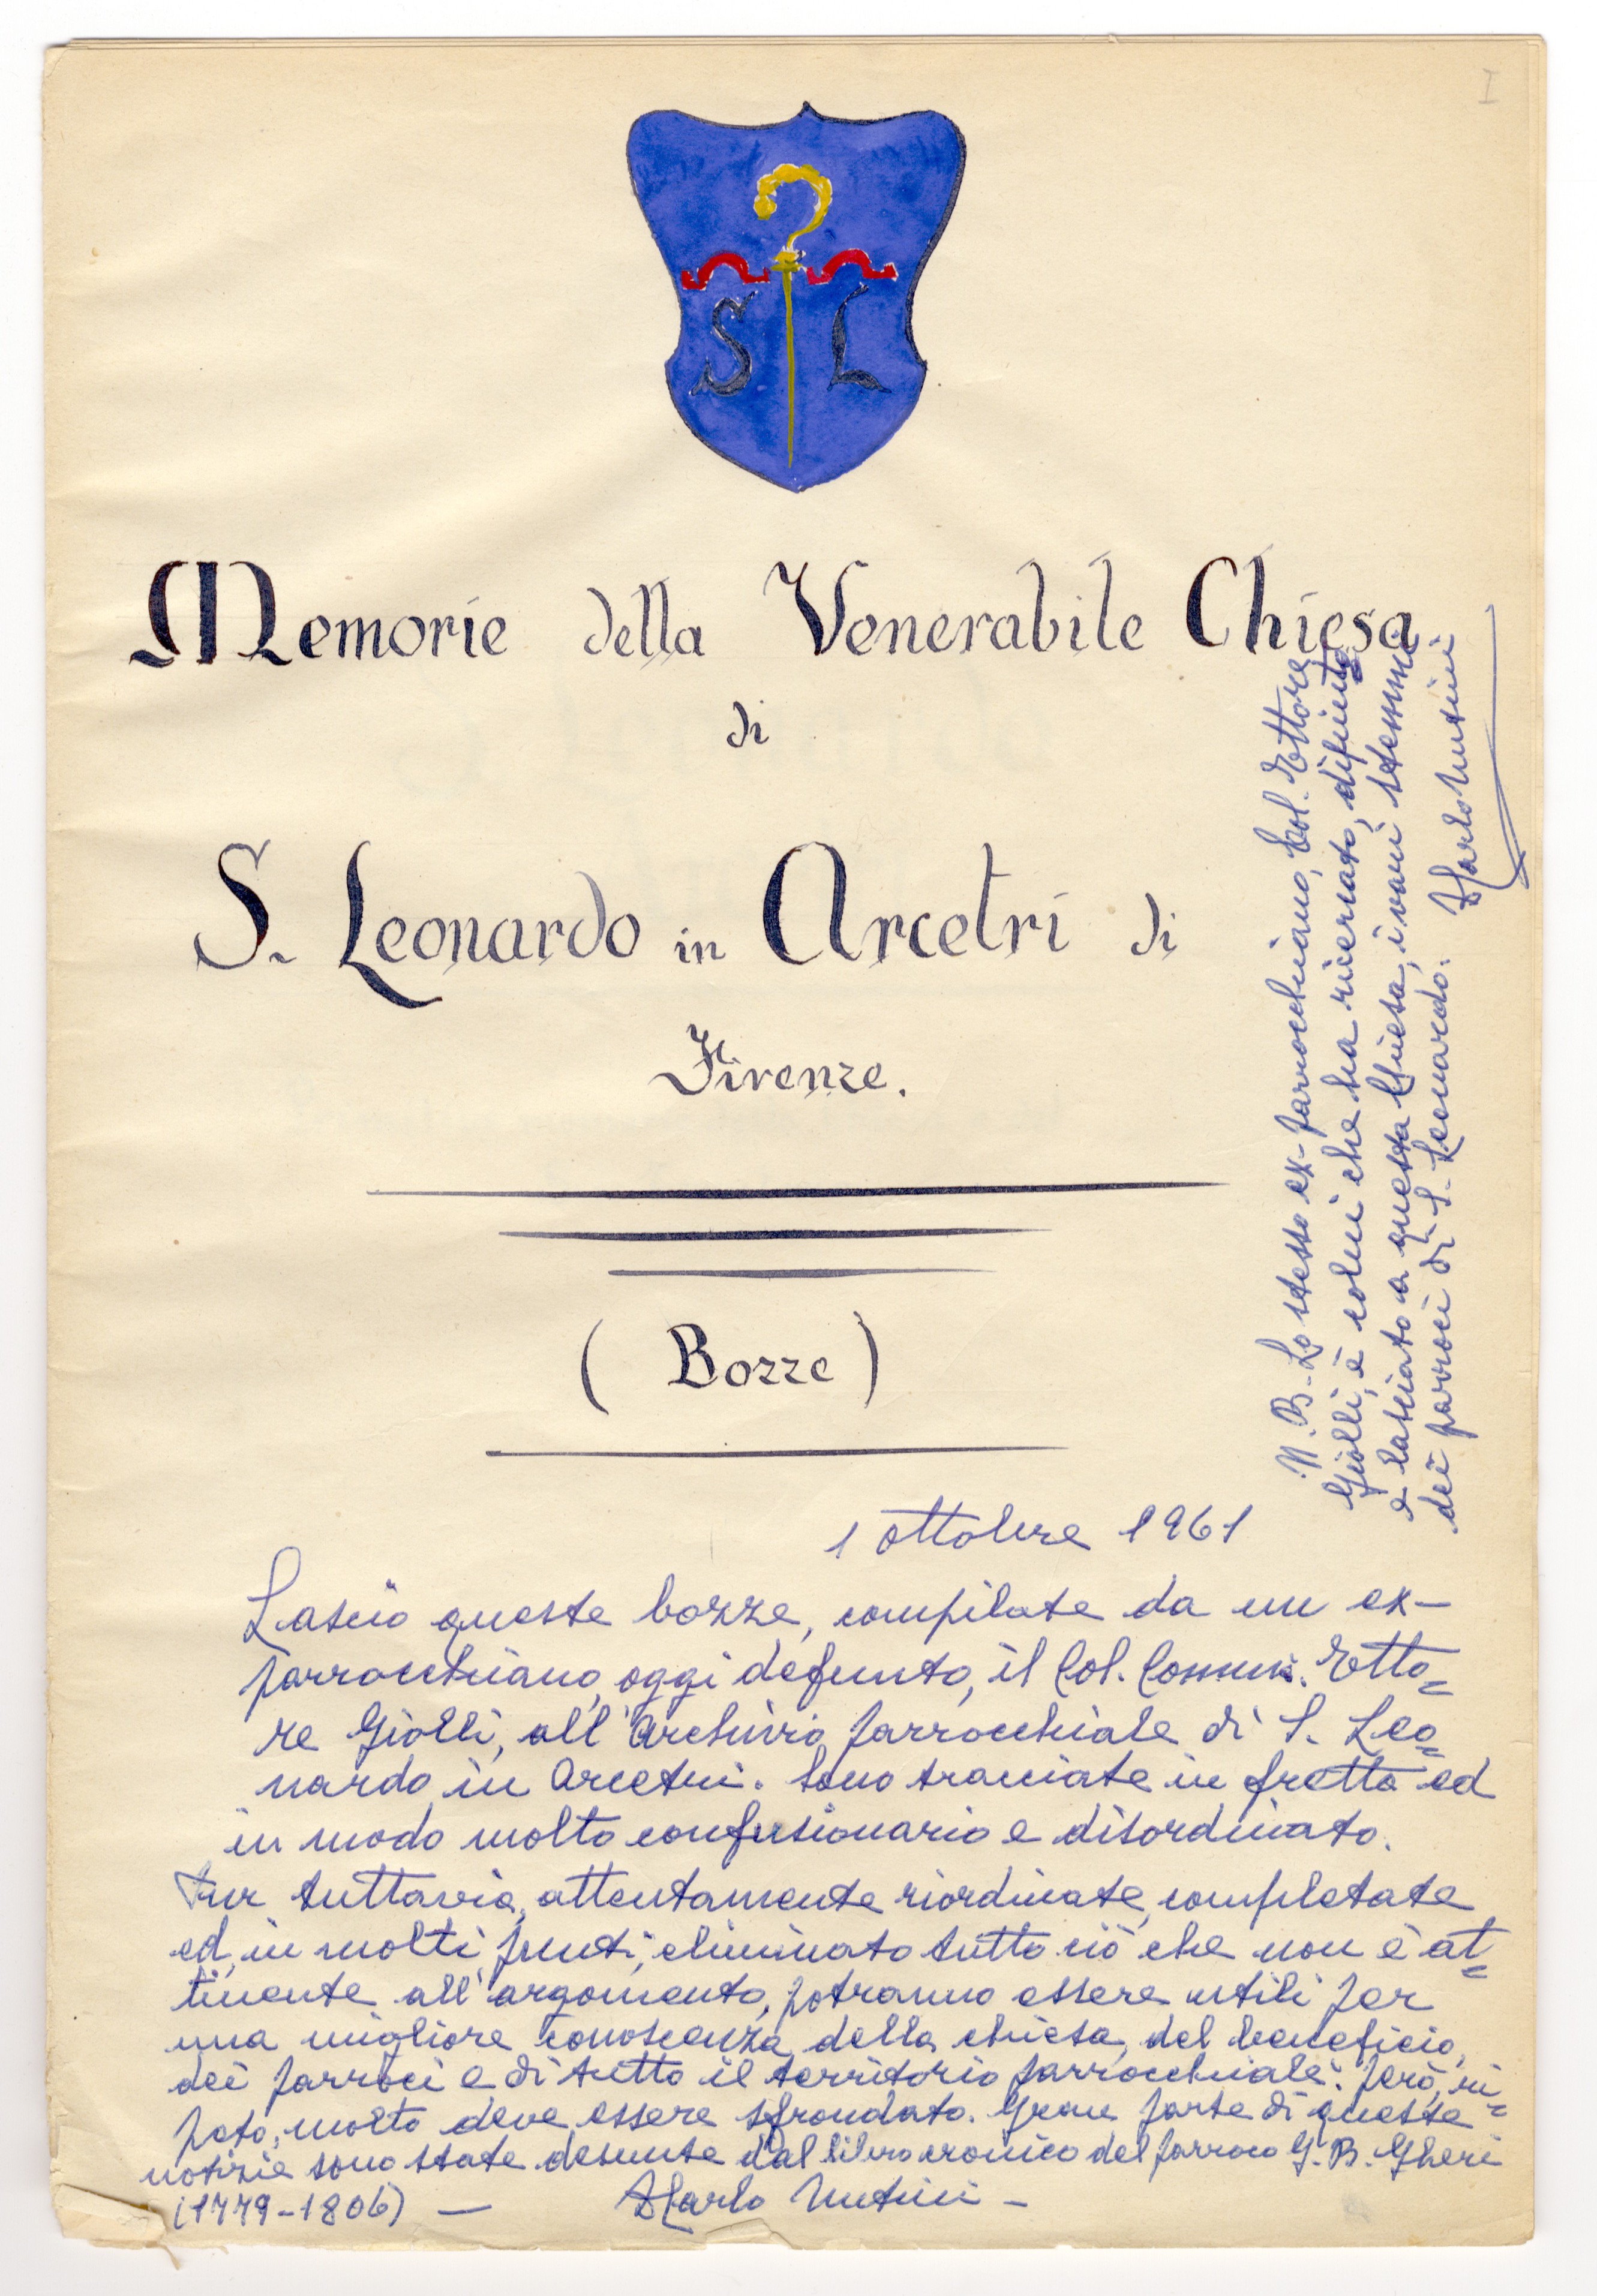 I
S L
Memorie della Venerabile Chiesa
di
S. Leonardo in Arcetri di
Firenze.
( Bozze )
1 ottobre 1961
Lascio queste bozze, compilate da un ex-
parrocchiano, oggi defunto, il Col. Comm. Etto=
re Giolli, all'Archivio parrocchiale di S. Leo=
nardo in Arcetri. Sono tracciate in fretta ed
in modo molto confusionario e disordinato.
Pur tuttavia, attentamente riordinate, completate
ed, in molti punti, eliminato tutto ciò che non è at=
tinente all'argomento, potranno essere utili per
una migliore conoscenza della chiesa, del beneficio,
dei parroci e di tutto il territorio parrocchiale. Però, ri=
peto, molto deve essere sfrondato. Gran parte di queste
notizie sono state desunte dal libro cronico del parroco G. B. Gheri
(1779-1806) —
N.B. Lo stesso ex-parrocchiano, Col. Ettore
Giolli, è colui che ha ricercato, dipinto
e lasciato a questa Chiesa, i vari stemmi
dei parroci di S. Leonardo.